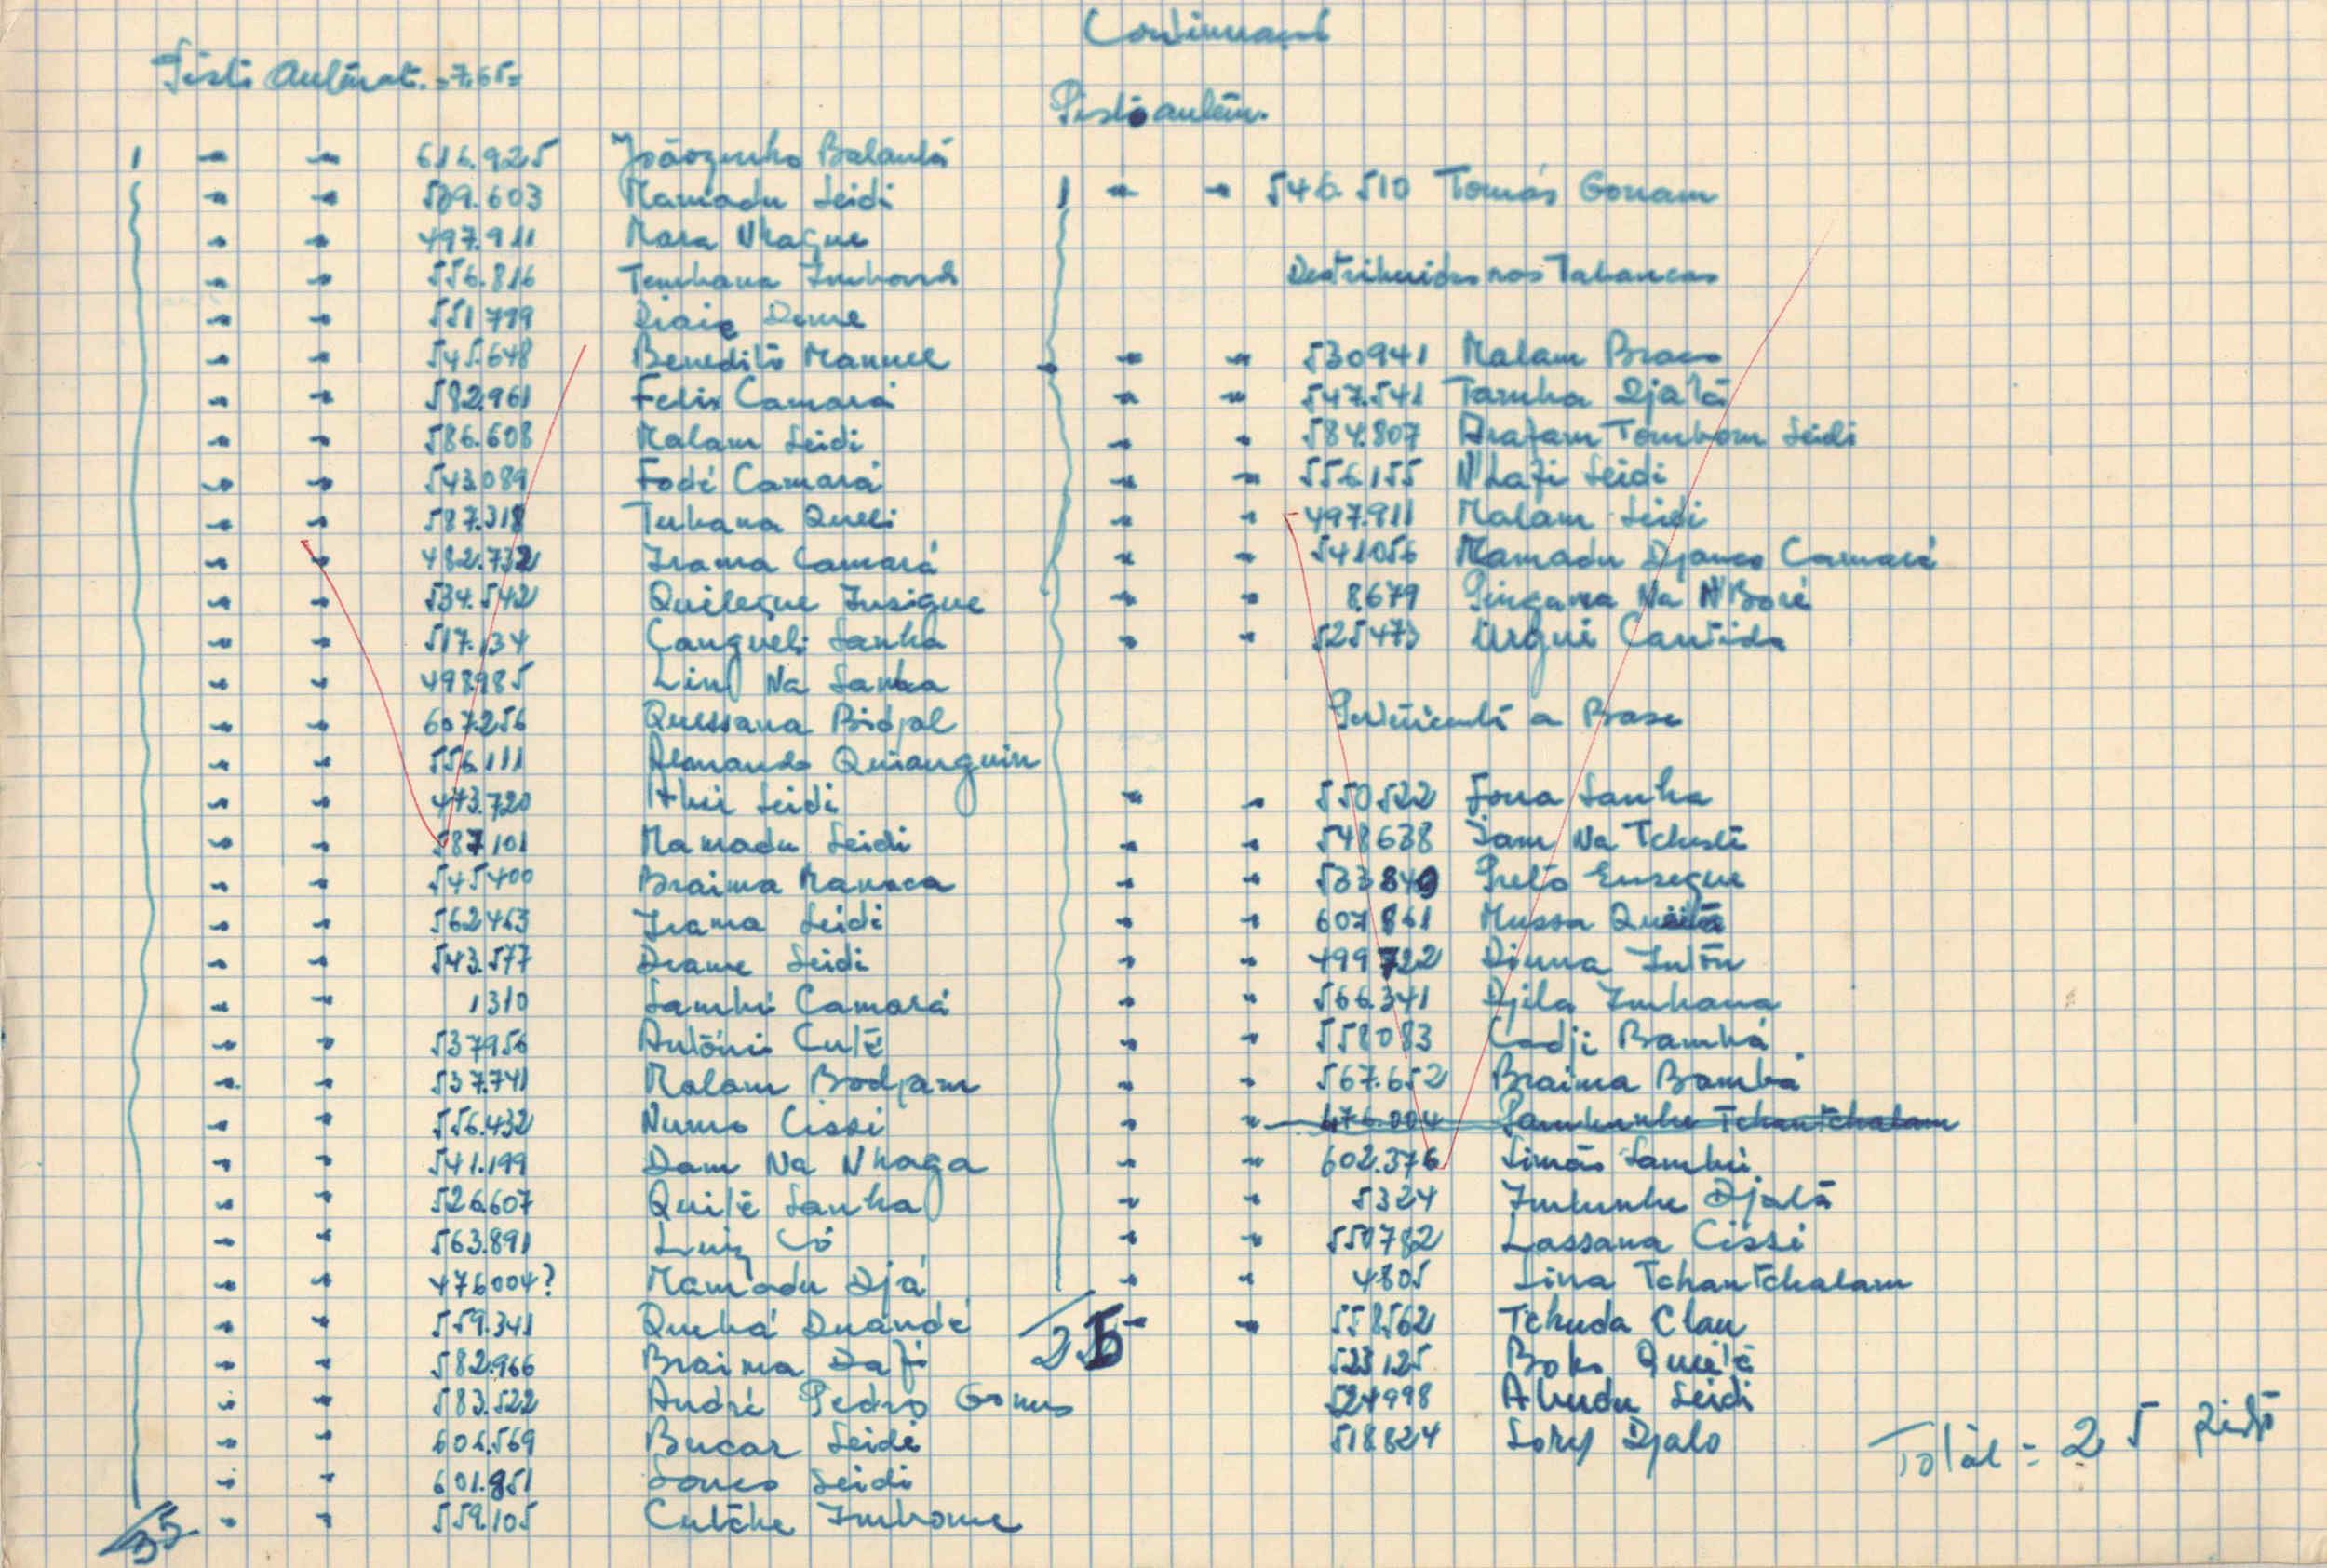 Pistó Automat. =7,65=
1 " " 616.925 Joãozinho Balantá
" " 589.603 Mamadu Seidi
" " 497.911 Mara Nhague
" " 556.816
" " 551799 Dame
" " 545.648 Benedito Manuel
" " 582.961 Felix Camará
" " 586.608 Malam Seidi
" " 543.089 Fodé Camará
" " 587.318 Tubana Queli
" " 482.732 Irama Camará
" " 534.542
" " 517.134 Cangueli Sanha
" " 498985 Na Sanha
" " 607.256 Quessana Bidjal
" " 556.111 Armando
" " 473.720 Seidi
" " 587101 Mamadu Seidi
" " 545400 Braima Manaca
" " 562463 Irama Seidi
" " 543.577 Drame Seidi
" " 1310 Sambú Camará
" " 537956 António Cuté
" " 537.741 Malam Bodjam
" " 556.432 Numo Cissi
" " 541.199 Dam Na Nhaga
" " 526.607 Quité Sanha
" " 563.891 Luiz Có
" " 476004? Mamadu Djá
" " 559.341 Quebá Duandé
" " 582.966 Braima Dafé
" " 583.522 André Pedro Gomes
" " 601.569 Bucar Seidi
" " 601.851 Seidi
" " 559.105
35
Continuaçõ
Pistó autóm.
1 " " 546.510 Tomás
Destribuidos nos Tabancas
" " 530941 Malam
" " 547.541 Tamba Djatá
" " 584.807 Arafam Tombom Seidi
" " 556155 Seidi
" " 497.911 Malam Seidi
" " 541056 Mamadu Djanco Camará
" " 8679 Na N'Boré
" " 525473 Urgui
Pertencente a Base
" " 550522 Sanha
" " 548638 Na
" " 533849 Preto
" " 607861 Mussa Queitá
" " 499722
" " 566.341 Djila Imbana
" " 558083 Cadji Bambá
" " 567.652 Braima Bambá
" " 476.004 Tchantchalam
" " 602.376 Simão Sambú
" " 5324 Djatá
" " 550782 Lassana Cissi
" " 4805 Sina Tchantchalam
25 " 558562 Tchuda Clau
523125 Boko Queitá
524998 Abudu Seidi
518824 Sory Djalo
Totál = 25